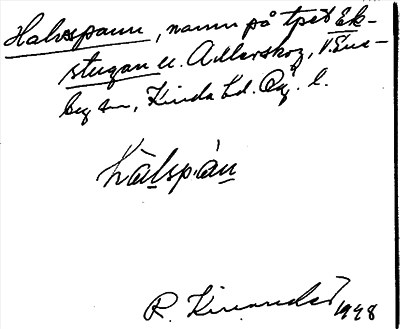 Halvspann, namn på tpet Ek-
stugan u. Adlerskog, V Ene-
by sn, Kinda hd. Ög. l.
hàlspán
R. Kinander 1948